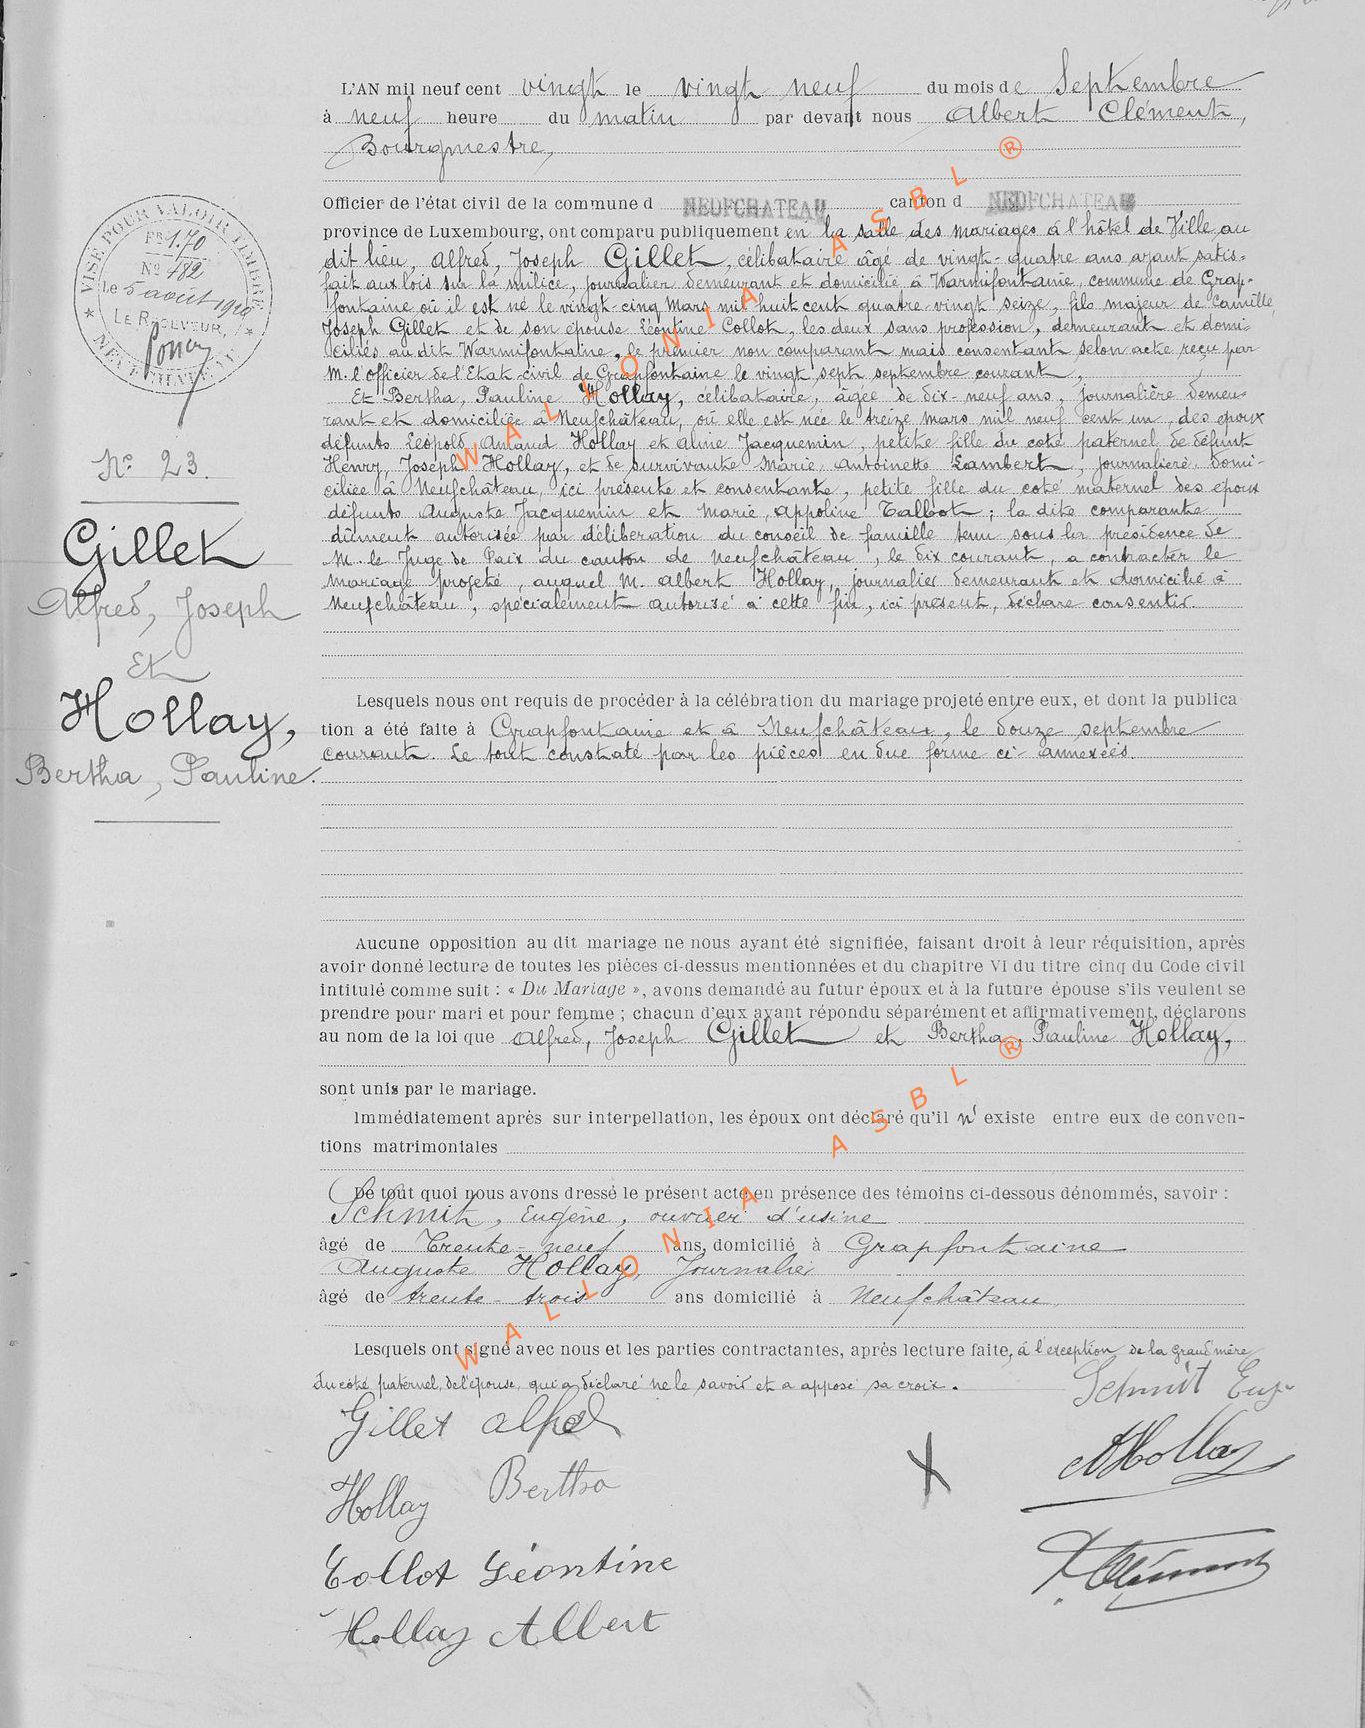 L'AN mil neuf cent vingt le vingt neuf du mois de Septembre
à neuf heure du matin par devant nous Albert Clément,
Bourgmestre,
Officier de l'état civil de la commune d NEUFCHATEAU canton d NEUFCHATEAU
province de Luxembourg, ont comparu publiquement en la salle des mariages à l'hôtel de Ville, au
dit lieu, Alfred, Joseph Gillet, célibataire âgé de vingt-quatre ans ayant satis-
fait aux lois sur la milice, journalier demeurant et domicilié à Warmifontaine, commune de Grap-
fontaine où il est né le vingt-cinq Mars mil huit cent quatre vingt seize, fils majeur de Camille
Joseph Gillet et de son épouse Léontine Collot, les deux sans profession, demeurant et domi-
ciliés au dit Warmifontaine, le premier non comparant mais consentant selon acte reçu par
M. l'officier de l'Etat-civil de Grapfontaine le vingt sept septembre courant,
Et Bertha, Pauline Hollay, célibataire, âgée de dix-neuf ans, journalière demeu-
rant et domiciliée à Neufchâteau, où elle est née le treize mars mil neuf cent un, des époux
défunts Léopold Amand Hollay et Aline Jacquemin, petite fille du coté paternel de défunt
Henry, Joseph Hollay, et de survivante Marie Antoinette Lambert, journalière domi-
ciliée à Neufchâteau, ici présente et consentante, petite fille du coté maternel des époux
défunts Auguste Jacquemin et Marie, Appoline Talbot; la dite comparante
dûment autorisée par délibération du conseil de famille tenu sous la présidence de
M. le Juge de Paix du canton de Neufchâteau, le dix courant, a contracter le
mariage projeté, auquel M. Albert Hollay, journalier demeurant et domicilié à
Neufchâteau, spécialement autorisé à cette fin, ici présent, déclare consentir.
Lesquels nous ont requis de procéder à la célébration du mariage projeté entre eux, et dont la publica
tion a été faite à Grapfontaine et à Neufchâteau, le douze septembre
courant. Le tout constaté par les pièces en due forme ci-annexées.
Aucune opposition au dit mariage ne nous ayant été signifiée, faisant droit à leur réquisition, après
avoir donné lecture de toutes les pièces ci-dessus mentionnées et du chapitre VI du titre cinq du Code civil
intitulé comme suit : « Du Mariage », avons demandé au futur époux et à la future épouse s'ils veulent se
prendre pour mari et pour femme ; chacun d'eux ayant répondu séparément et affirmativement, déclarons
au nom de la loi que Alfred, Joseph Gillet et Bertha, Pauline Hollay,
sont unis par le mariage.
Immédiatement après sur interpellation, les époux ont déclaré qu'il n' existe entre eux de conven-
tions matrimoniales
De tout quoi nous avons dressé le présent acte en présence des témoins ci-dessous dénommés, savoir :
Schmit, Eugène, ouvrier d'usine
âgé de Trente-neuf ans, domicilié à Grapfontaine
Auguste Hollay, Journalier
âgé de trente-trois ans domicilié à Neufchâteau
Lesquels ont signé avec nous et les parties contractantes, après lecture faite, à l'exception de la grand'mère
du coté paternel, de l'épouse, qui a déclaré ne le savoir et a apposé sa croix.
Schmit Eug
Gillet Alfred
AHollay
Hollay Bertha
Collot Léontine
Clément
Hollay Albert
VISÉ POUR VALOIR TIMBRE
Fs 1.70
No 482
Le 5 août 1920
LE RECEVEUR,
NEUFCHATEAU
No 23.
Gillet
Alfred, Joseph
Et
Hollay,
Bertha, Pauline.
WALLONIA ASBL ®
WALLONIA ASBL ®